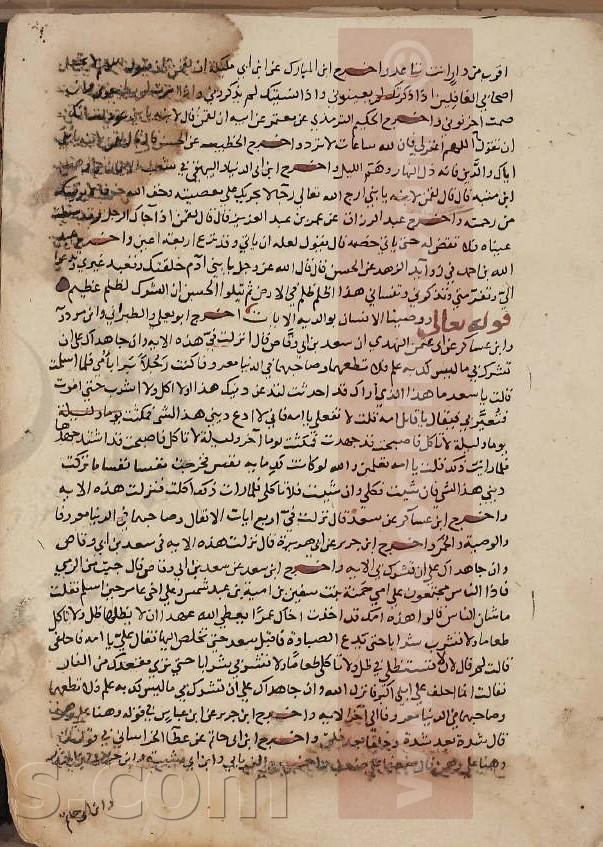 اقرب من دار انت تباعد واخرج ابن المبارك عن ابن ابي مليكة ان لقمن كان يقول اللهم لا تجعل
اصحابي الغافلين اذا ذكرتك لم يعينوني واذا نسيتك لم يذكروني واذا
صمت احزنوني واخرج الحكيم الترمذي عن معتمر عن ابيه ان لقمن قال لابنه يا بني عود لسانك
ان تقول اللهم اغفر لي فان لله ساعات لا ترد واخرج الخطيب عن الحسن قال قال لقمن لابنه يا بني
اياك والدين فانه ذل النهار وهم الليل واخرج ابن ابي الدنيا والبيهقي في شعب الايمان عن وهب
ابن منبه قال قال لقمن لابنه يا بني ارج الله تعالى رجا لا يجريك على معصيته وخف الله خوفا لا يويسك
من رحمته واخرج عبد الرزاق عن عمر بن عبد العزيز قال قال لقمن اذا جاك الرجل وقد سقطت
عيناه فلا تقض له حتى ياتي خصمه قال يقول لعله ان ياتي وقد نزع اربعة اعين واخرج عبد
الله بن احمد في زوايد الزهد عن الحسن قال قال الله عز وجل يا ابن ادم خلقتك وتعبد غيري وتدعو
الي وتفر مني وتذكرني وتنساني هذا اظلم ظلم في الارض ثم تلوا الحسن ان الشرك لظلم عظيم
قوله تعالى ووصينا الانسان بوالديه الايات اخرج ابو يعلى والطبراني وابن مردويه
وابن عساكر عن ابي عثمن النهدي ان سعد بن ابي وقاص قال انزلت في هذه الاية وان جاهداك على ان
تشرك بي ما ليس لك به علم فلا تطعهما وصاحبهما في الدنيا معروفا كنت رجلا برا بامي فلما اسلمت
قالت يا سعد ما هذا الذي اراك قد احدثت لتدعن دينك هذا او لا اكل ولا اشرب حتى اموت
فتعير بي فيقال يا قاتل امه قلت لا تفعلي يا امه فاني لا ادع ديني هذا لشي فمكثت يوما وليلة
لا تاكل فاصبحت قد جهدت فمكثت يوما اخر وليلة لا تاكل فاصبحت قد اشتد جهدها
فلما رايت ذلك قلت يا امه تعلمين والله لو كانت لك ماية نفس فخرجت نفسا نفسا ما تركت
ديني هذا لشي فان شيت فكلي وان شيت فلا تاكلي فلما رات ذلك اكلت فنزلت هذه الاية
واخرج ابن عساكر عن سعد قال نزلت في اربع ايات الانفال وصاحبهما في الدنيا معروفا
والوصية والخمر واخرج ابن جرير عن ابي هريرة قال نزلت هذه الاية في سعد بن ابي وقاص
وان جاهداك على ان تشرك بي الاية واخرج ابن سعد عن سعد بن ابي وقاص قال جيت من الرمي
فاذا الناس مجتمعون على امي حمنة بنت سفين بن امية بن عبد شمس وعلى اخي عامر حين اسلم فقلت
ما شان الناس قالوا هذه امك قد اخذت اخاك عمرا تعطي الله عهدا ان لا يظلها ظل ولا تاكل
طعاما ولا تشرب شرابا حتى يدع الصباوة فاقبل سعد حتى تخلص اليها فقال علي يا امه فاحلفي
قالت لم قال لان لا تستظلي في ظل ولا تاكلي طعاما ولا تشربي شرابا حتى تري مقعدك من النار
فقالت انما احلف على ابني البر فانزل الله وان جاهداك على ان تشرك بي ما ليس لك به علم فلا تطعهما
وصاحبهما في الدنيا معروفا الى اخر الاية واخرج ابن جرير عن ابن عباس في قوله وهنا على وهن
قال شدة بعد شدة وخلقا بعد خلق واخرج ابن ابي حاتم عن عطا الخراساني في قوله
وهنا على وهن قال ضعفا على ضعف واخرج الفريابي وابن ابي شيبة وابن جرير
وابن ابي حاتم
s.com